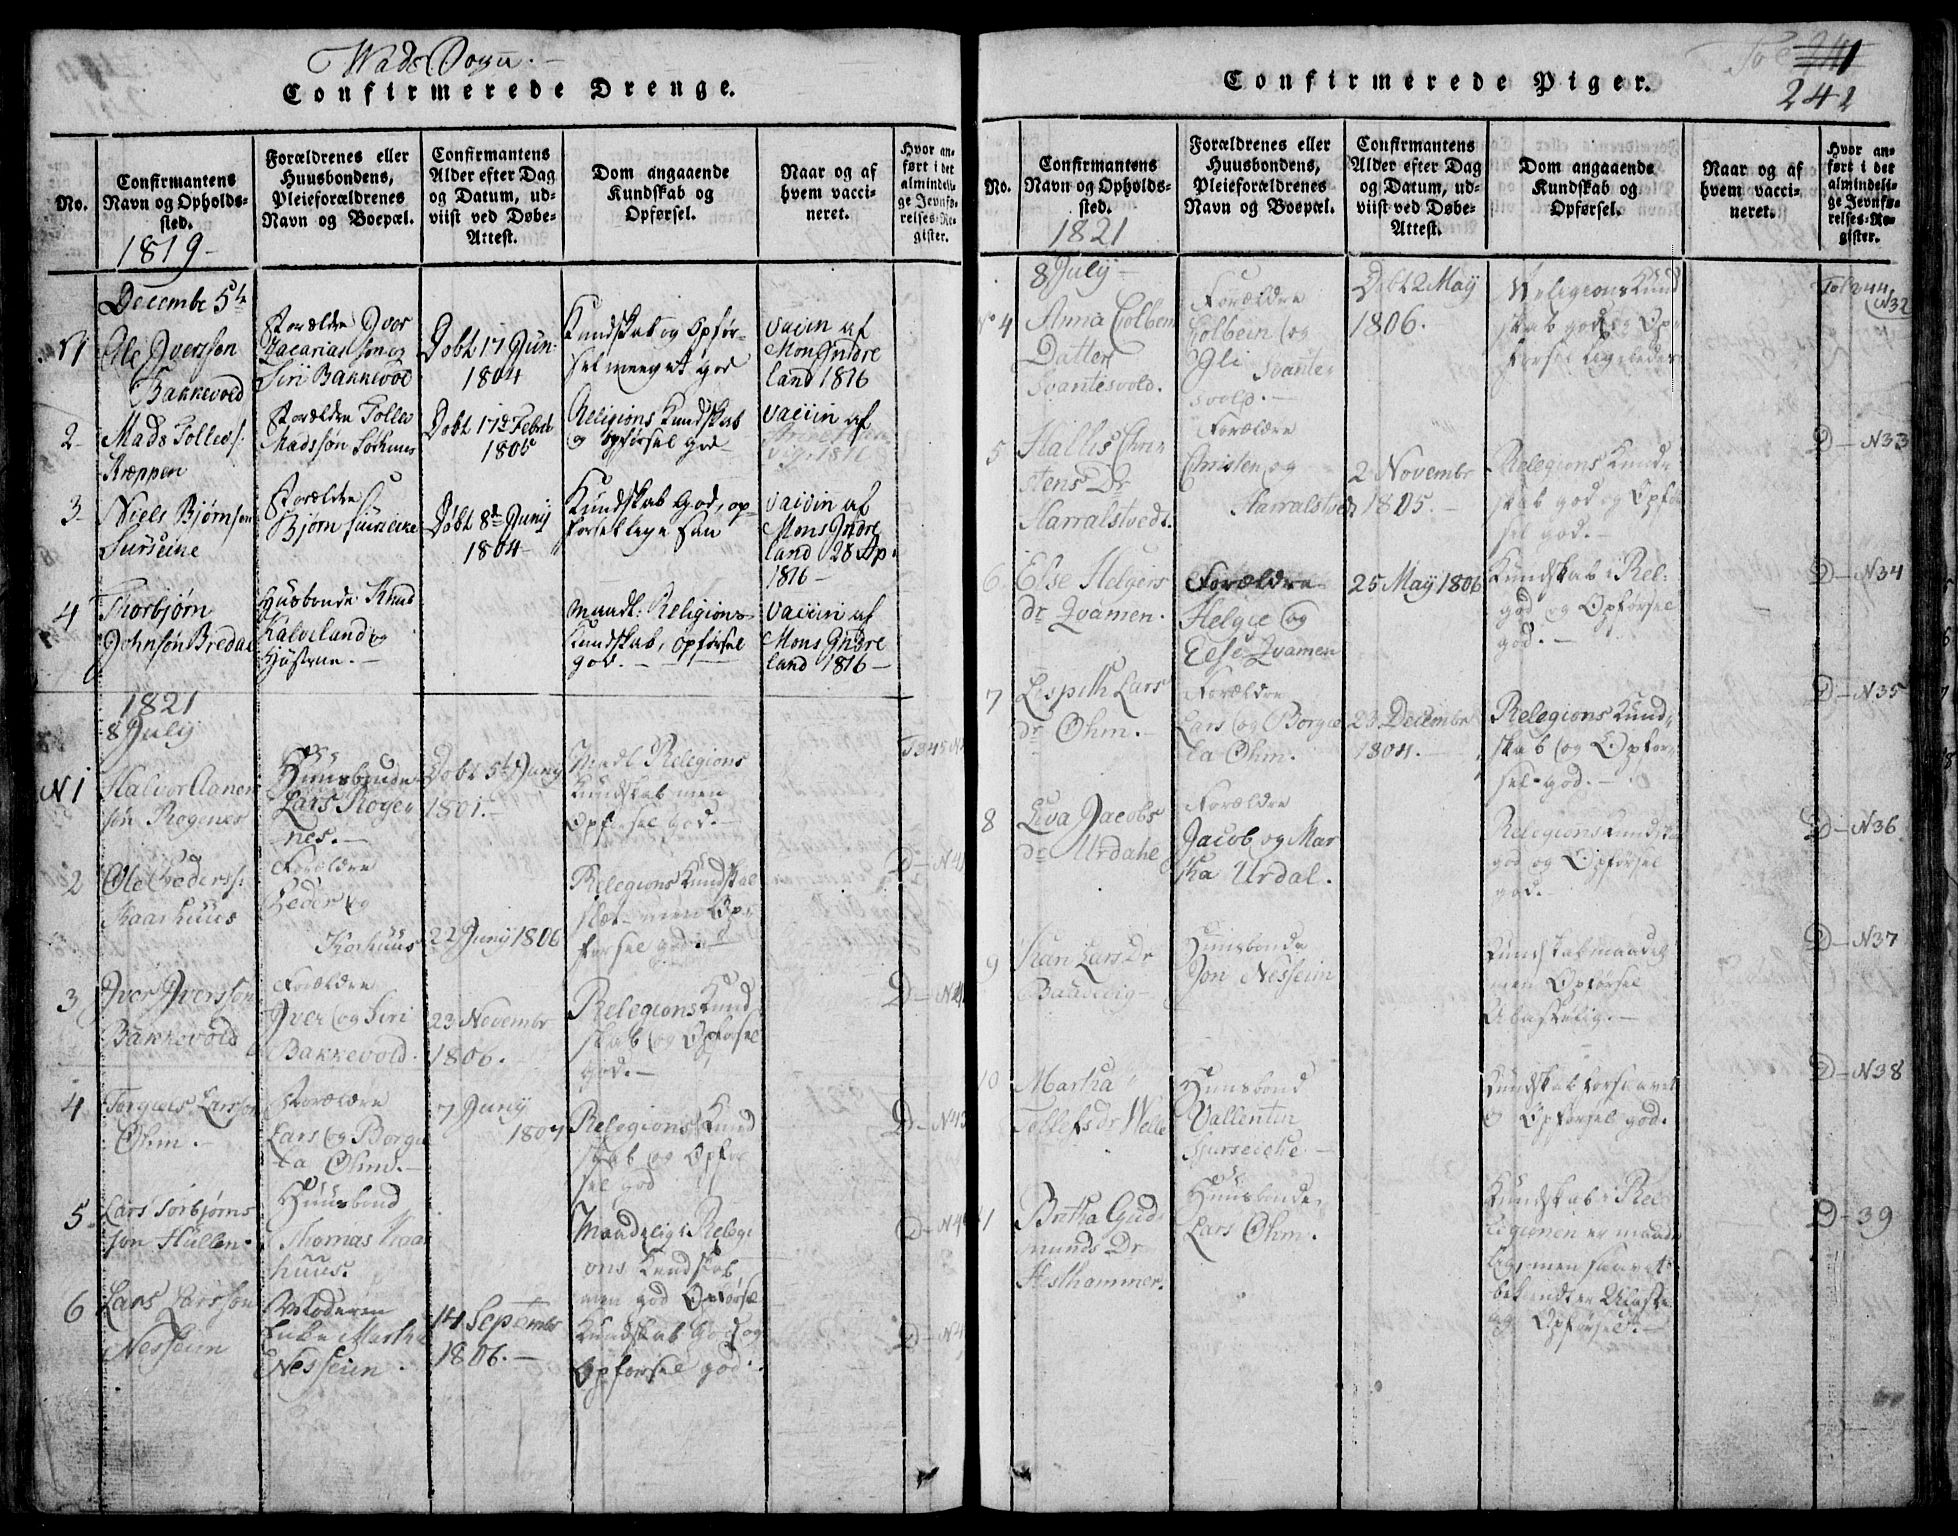 Wads Sogn.
Confirmerede Drenge.
No.
Confirmantens
Navn og Opholds-
sted.
1819
Forældrenes eller
Huusbondens,
Pleieforældrenes
Navn og Boepæl.
Confirmantens
Alder efter Dag
og Datum, ud-
viist ved Døbe-
Attest.
Dom angaaende
Kundskab og
Opførsel.
Naar og af
hvem vacci-
neret.
Hvor an-
ført i det
almindeli-
ge Jevnfø-
relses-Re-
gister.
Decembr 5te
N1
Ole Iversson
Bakkevold
Forældre Iver
Zacariasson og
Siri Bakkevold
Døbt 17 Jun.
1804
Kundskab og Opfør-
sel meeget god
Vaccin af
Mons Indre
land 1816
2
Mads Tollevs:
Kreppen
Forældre Tollev
Madsson
Døbt 17de Febr
1805
Religions Kundskab
og opførsel god
Vaccin af
1816
3
Niels Bjørnson
Surseine
Forældre
Bjørn
Døbt 8de Junij
1804
Kundskab God, op-
førsel lige saa
Vaccin af
Mons Indre
land 28 Ap:
1816
4
Thorbjørn
Johnsøn Bredal
Husbonde Knud
Kalveland og
Hustrue.
Maadl: Religions
Kundskab, opførsel
god.
Vaccin af
Mons Indre
land 1816
1821
8 July
N1
Halvor Aanen
søn Rogenes
Huusbonde
Lars Roger
nes.
Døbt 5te Juny
1801.
Madl Relegions
Kundskab men
Opførsel god.
2
Ole Peders:
Kaarhuus
Forældre
Peder og
Korhuus
22 Junij 1806
Relegions Kundskab
slet men Op-
førsel god.
D - N41
3
Iver Iversson
Bakkevold
Forældre
Iver og Siri
Bakkevold.
23 Novembr
1806.
Relegions Kund
skab og Opførsel
god.
4
Torgiels Larsson
Ohm.
Forældre
Lars og Borgil
la Ohm.
7 Junij
1804
Relegions Kund
skab og Opfør
sel god
D - N43
5
Lars Torbjørns
søn Hullen.
Huusbond
Thomas Kaar
huus.
Maadelig i Relegi
ons Kundskab
men god Opførsel
6
Lars Larsson
Nesseim
Moderen
Enke Martha
Nesseim
14 Septembr
1806.
Kundskab God og
Opførsel god.
Confirmerede Piger.
241
242
No.
Confirmantens
Navn og Opholds-
sted.
1821
Forældrenes eller
Huusbondens,
Pleieforældrenes
Navn og Boepæl.
Confirmantens
Alder efter Dag
og Datum, ud-
viist ved Døbe-
Attest.
Dom angaaende
Kundskab og
Opførsel.
Naar og af
hvem vacci-
neret.
Hvor an-
ført i det
almindeli-
ge Jevnfø-
relses-Re-
gister.
8 July
No 4
Anna Colbens
Datter
Svantesvold.
Forældre
Colbein og
Gli Svantes
vold.
Døbt 2 May
1806.
Religions Kund
skab god og Op-
førsel ligeledes
Fol 244
N32
5
Hallis Chri
stens Dr
Harralstvedt.
Forældre
Christen og
Harralstved
2 Novembr
1805.
Relegions Kund-
skab god og Opfør
sel god.
D - N33
6
Else Helgers
dr Qvamen.
Forældre
Helge og
Else Qvamen
25 May 1806
Kundskab i Rel:
god og Opførsel
god.
D - N34
7
Lispeth Lars
dr Ohm.
Forældre
Lars og Borgil
la Ohm.
23 Decembr
1804.
Relegions Kund-
skab og Opfør-
sel god.
D - N35
8
Eva Jacobs
dr Urdahl
Forældre
Jacob og Mar
tha Urdal.
Relegions Kundskab
god og Opførsel
god.
D - N36
9
Kari Lars Dr
Huusbonde
Jon Nesseim
Kundskab maadel
men Opførsel
Ulastelig.
D - N37
10
Martha
Tollefs dr Welle
Huusbond
Vallentin
Kundskab forsvaret
og Opførsel god.
D - N38
11
Bretha Gud-
munds Dr
Hesthammer.
Huusbonde
Lars Ohm.
Kundskab i Re-
ligionen er maade
lig, men
bekiendt er Ulaste
lig Opførsel.
D - 39